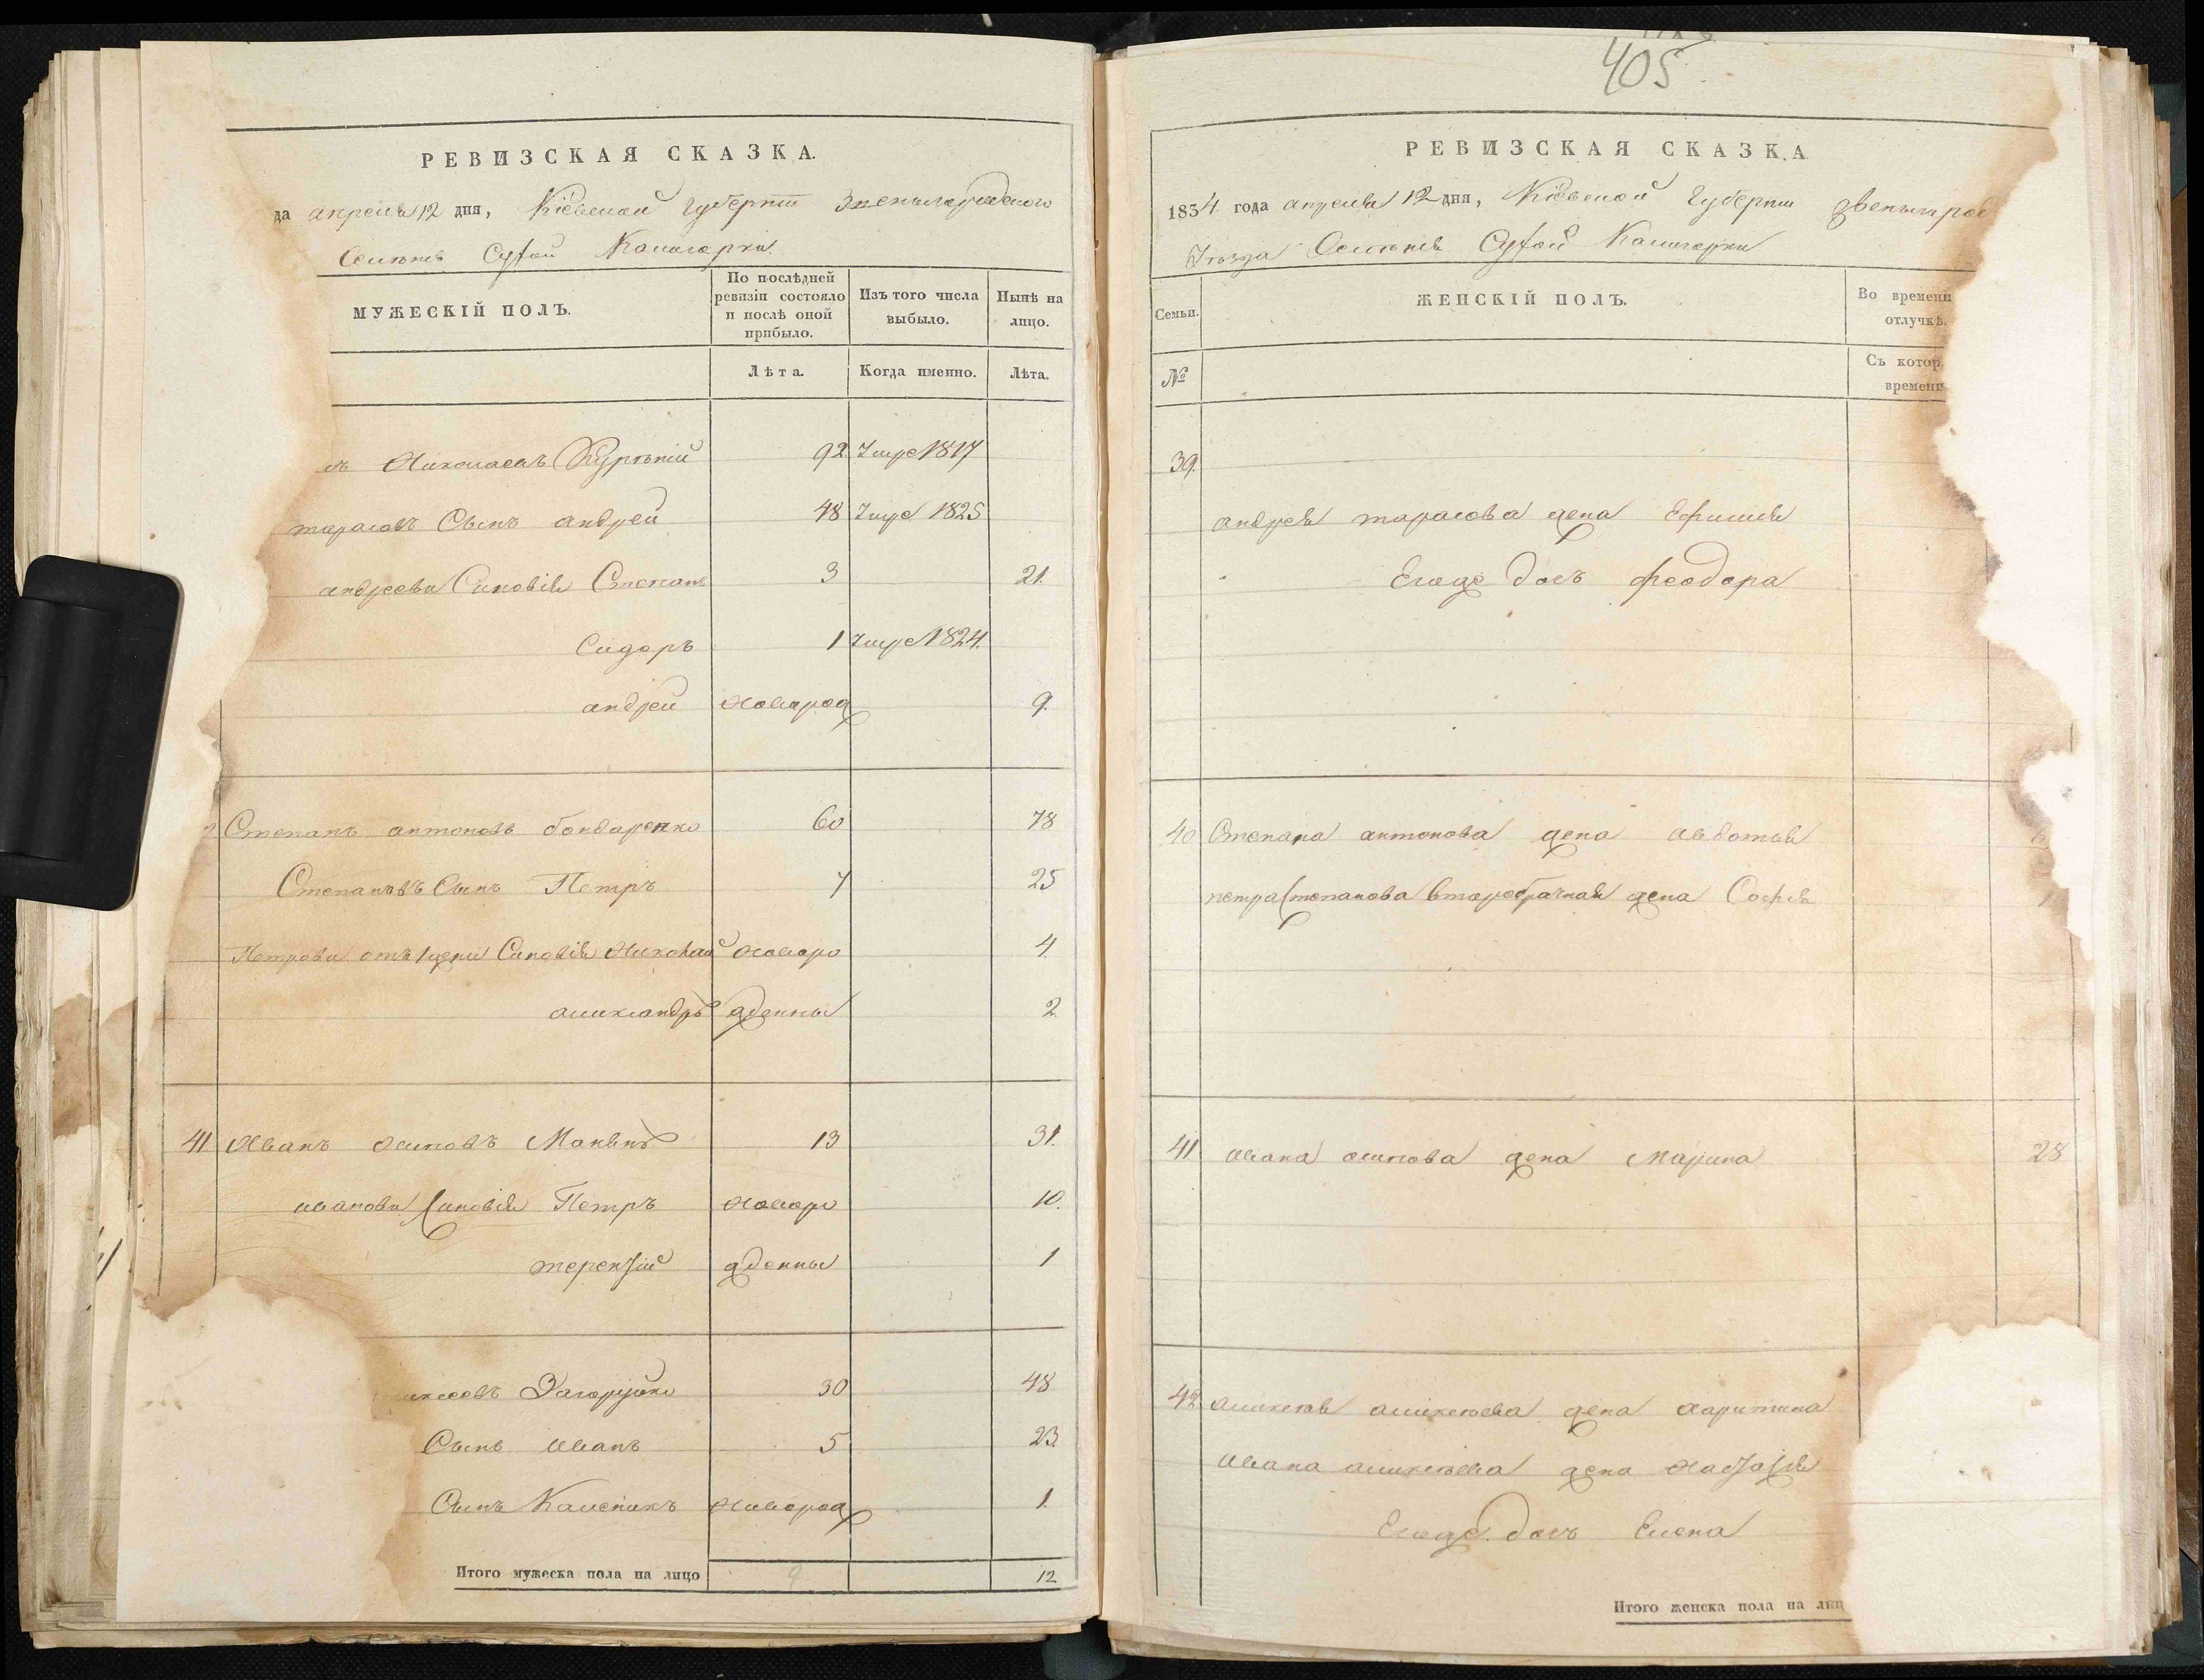 РЕВИЗСКАЯ СКАЗКА.
да апреля 12 дня, Кіевской Губерніи Звенигородского
Селенія Сухой Калигорки.
МУЖЕСКІЙ ПОЛЪ.
По послѣдней ревизіи состояло и послѣ оной прибыло.
Изъ того числа выбыло.
Нынѣ на лицо.
Лѣта.
Когда именно.
Лѣта.
Николаевъ 92 Умре 1817
тарасовъ Сынъ андрей 48 Умре 1825
андреевы Сыновія Степанъ 3 21.
Сидоръ 1 Умре 1824.
андрей новорож 9.
Степанъ антоновъ бондаренко 60 78
Степановъ Сынъ Петръ 7 25
Петровы отъ 1 жены Сыновія Николай новоро 4
александръ жденны 2.
41 Иванъ осиповъ 13 31.
ивановы Сыновія Петръ новоро 10.
терентій жденны 1
Загоруйко 30 48
Сынъ иванъ 5 23
Сынъ Каленикъ новорож 1.
Итого мужеска пола на лицо 9 12
405
РЕВИЗСКАЯ СКАЗКА
1834 года апреля 12 дня, Кіевской Губерніи Звенигород
Уѣзда Селенія Сухой Калигорки
Семьи.
ЖЕНСКІЙ ПОЛЪ.
Во времени отлучкѣ.
№
Съ котор времени
39.
андрея тарасова жена Ефимія
Егоже дочь феодора
40 Степана антонова жена авдотія
петра Степанова второбрачная жена Софія
41 ивана осипова жена Марина 28
42 алексея алексеева жена харитина
ивана алексеева жена настасія
Егоже дочь Елена
Итого женска пола на лиц